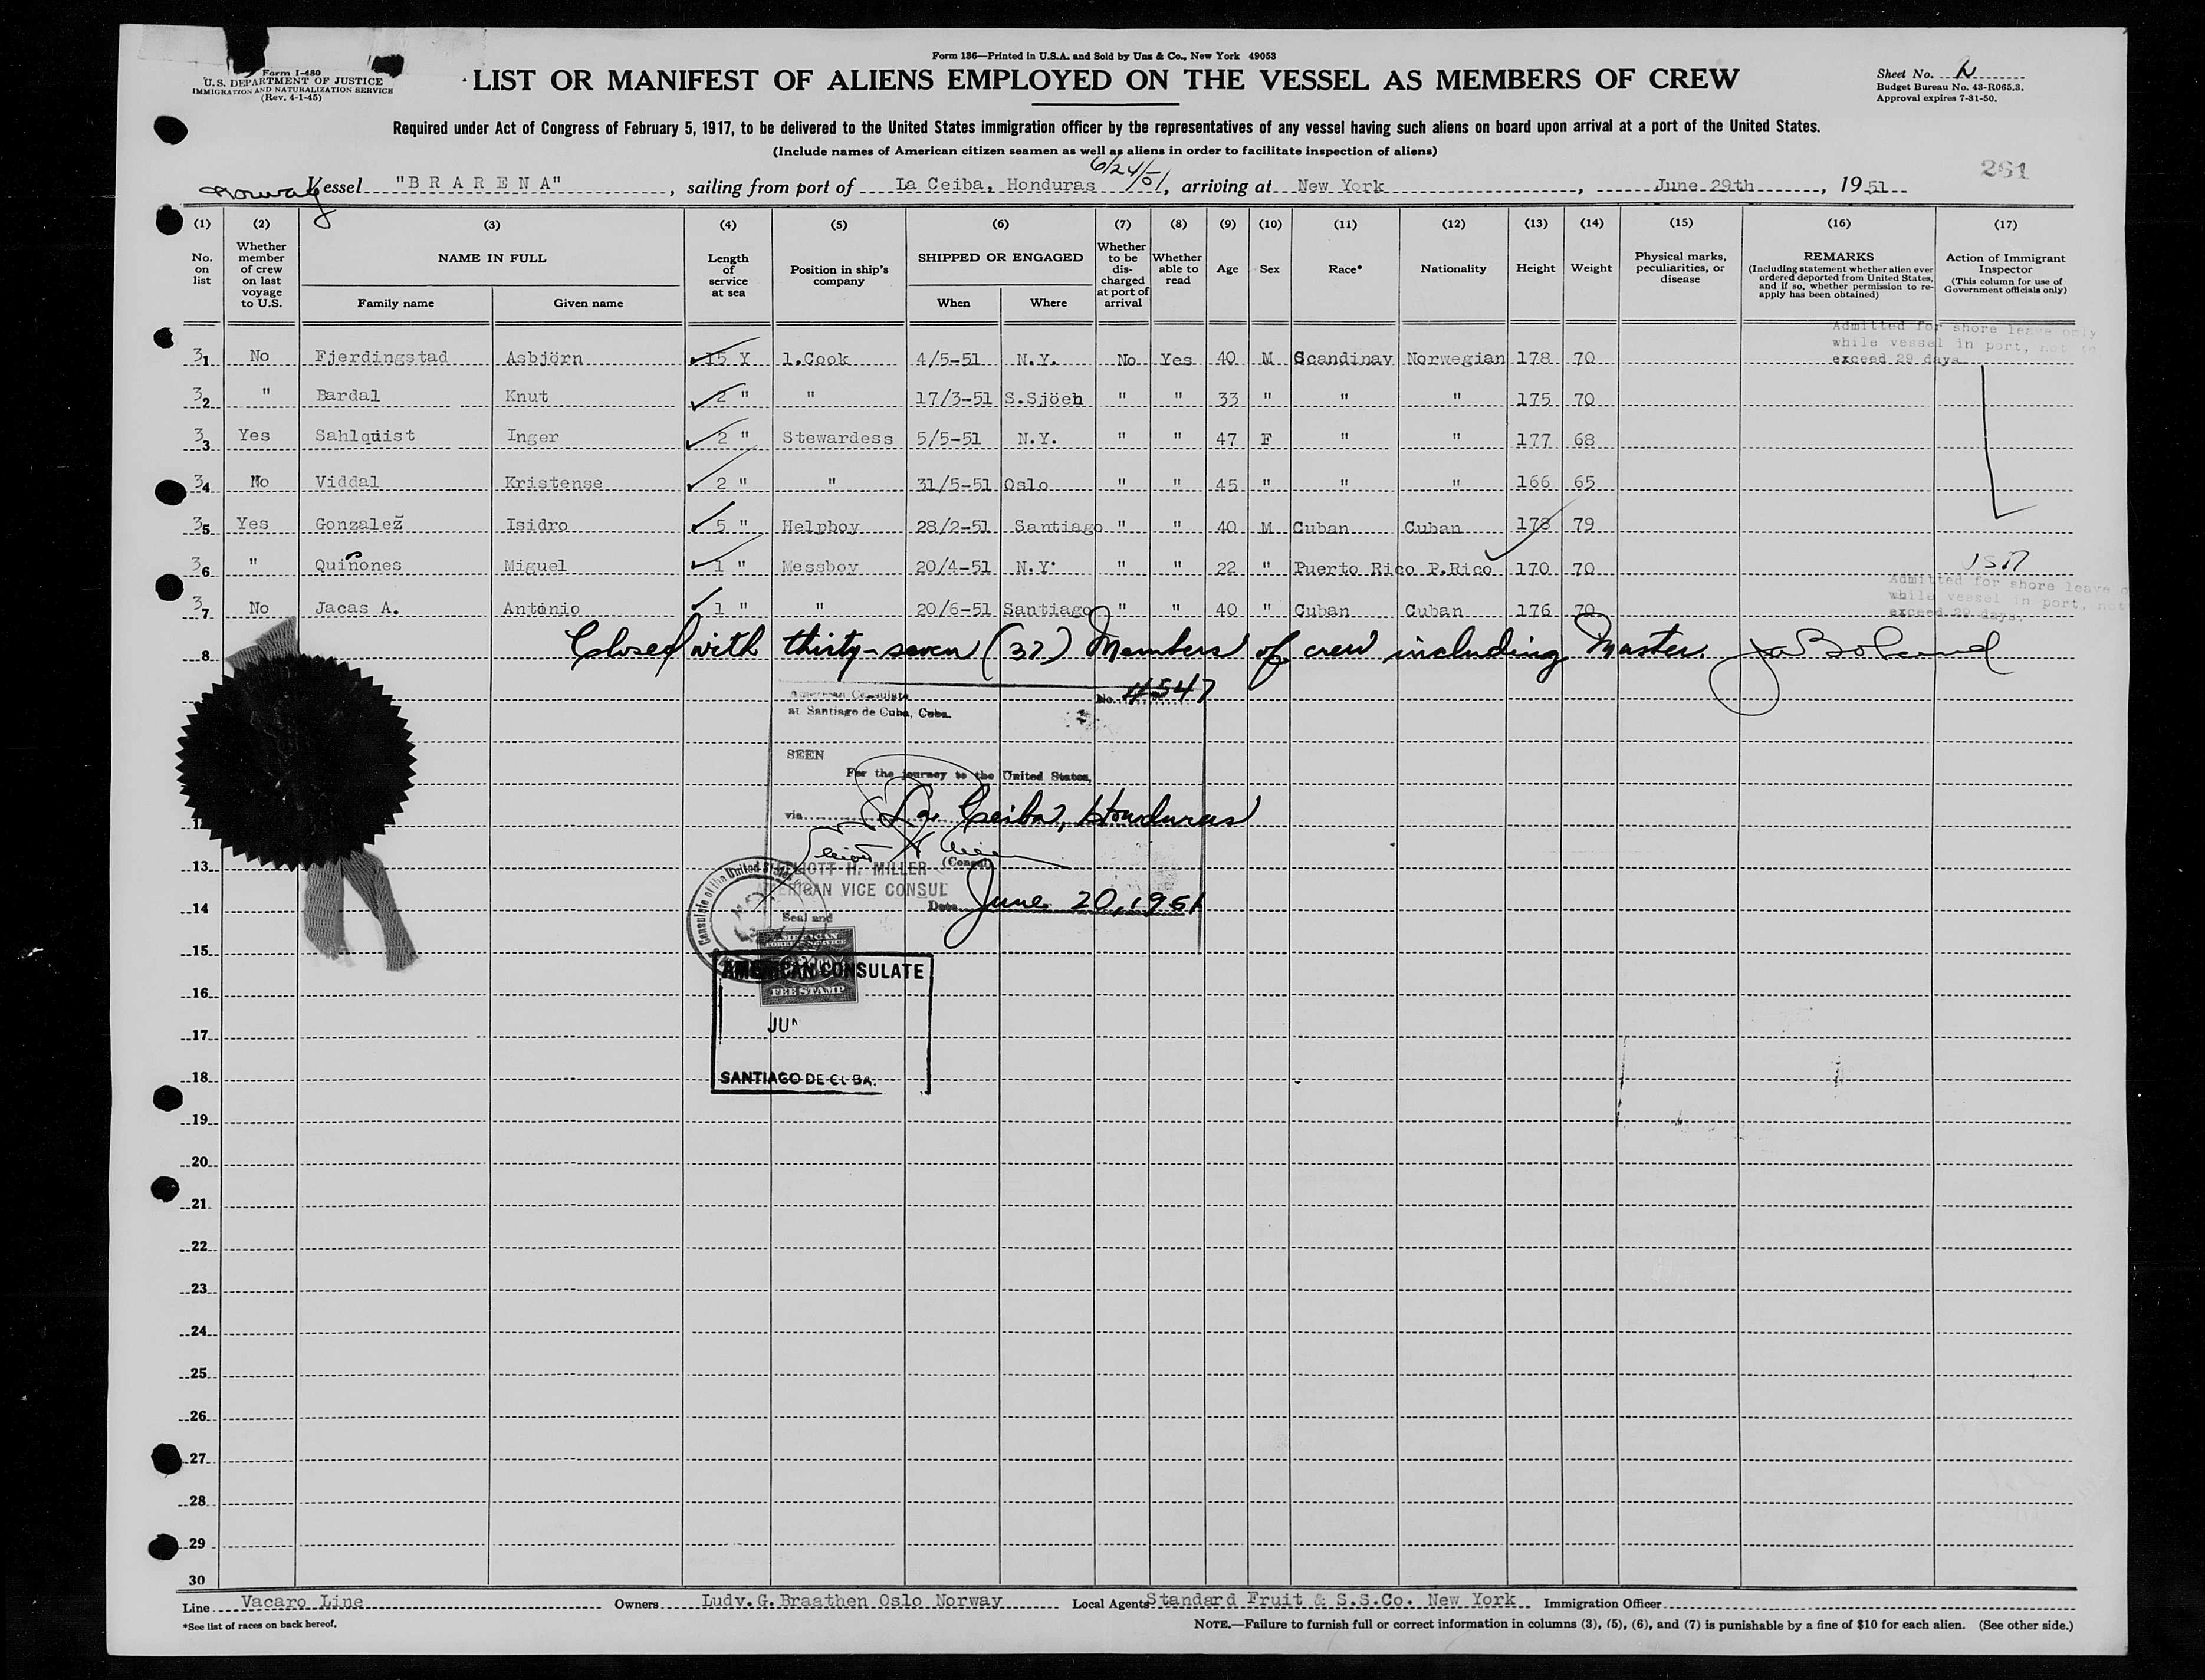 Form 136—Printed in U.S.A. and Sold by Unz & Co., New York 49053
Form I-480
U.S. DEPARTMENT OF JUSTICE
IMMIGRATION AND NATURALIZATION SERVICE
(Rev. 4-1-45)
LIST OR MANIFEST OF ALIENS EMPLOYED ON THE VESSEL AS MEMBERS OF CREW
Sheet No.
Budget Bureau No. 43-R065.3.
Approval expires 7-31-50.
Required under Act of Congress of February 5, 1917, to be delivered to the United States immigration officer by the representatives of any vessel having such aliens on board upon arrival at a port of the United States.
(Include names of American citizen seamen as well as aliens in order to facilitate inspection of aliens)
261
6/24/51
Norway Vessel "BRARENA", sailing from port of La Ceiba, Honduras, arriving at New York, June 29th, 1951
(1) (2) (3) (4) (5) (6) (7) (8) (9) (10) (11) (12) (13) (14) (15) (16) (17)
No. on list
Whether member of crew on last voyage to U.S.
NAME IN FULL
Family name Given name
Length of service at sea
Position in ship's company
SHIPPED OR ENGAGED
When Where
Whether to be discharged at port of arrival
Whether able to read
Age
Sex
Race*
Nationality
Height
Weight
Physical marks, peculiarities, or disease
REMARKS
(Including statement whether alien ever ordered deported from United States, and if so, whether permission to re-apply has been obtained)
Action of Immigrant Inspector
(This column for use of Government officials only)
Admitted for shore leave only
while vessel in port, not to
exceed 29 days.
31 No Fjerdingstad Asbjörn 15 Y 1.Cook 4/5-51 N.Y. No Yes 40 M Scandinav Norwegian 178 70
32 " Bardal Knut 2 " " 17/3-51 S.Sjöen " " 33 " " " 175 70
33 Yes Sahlquist Inger 2 " Stewardess 5/5-51 N.Y. " " 47 F " " 177 68
34 No Viddal Kristense 2 " " 31/5-51 Oslo " " 45 " " " 166 65
35 Yes Gonzalez Isidro 5 " Helpboy 28/2-51 Santiago " " 40 M Cuban Cuban 178 79
36 " Quiñones Miguel 1 " Messboy 20/4-51 N.Y. " " 22 " Puerto Rico P.Rico 170 70
37 No Jacas A. António 1 " " 20/6-51 Santiago " " 40 " Cuban Cuban 176 70
Admitted for shore leave o
while vessel in port, not
exceed 29 days.
8 Closed with thirty-seven (37) Members of crew including Master.
American Consulate
at Santiago de Cuba, Cuba.
No. 4547
SEEN
For the journey to the United States,
via La Ceiba, Honduras
(Consul)
ELLIOTT H. MILLER
AMERICAN VICE CONSUL
Date June 20, 1951
Consulate of the United States
Seal and
AMERICAN
FOREIGN SERVICE
FEE STAMP
AMERICAN CONSULATE
JUN
SANTIAGO DE CUBA.
13
14
15
16
17
18
19
20
21
22
23
24
25
26
27
28
29
30
Line Vacaro Line Owners Ludv.G.Braathen Oslo Norway Local Agents Standard Fruit & S.S.Co. New York Immigration Officer
*See list of races on back hereof.
NOTE.—Failure to furnish full or correct information in columns (3), (5), (6), and (7) is punishable by a fine of $10 for each alien. (See other side.)